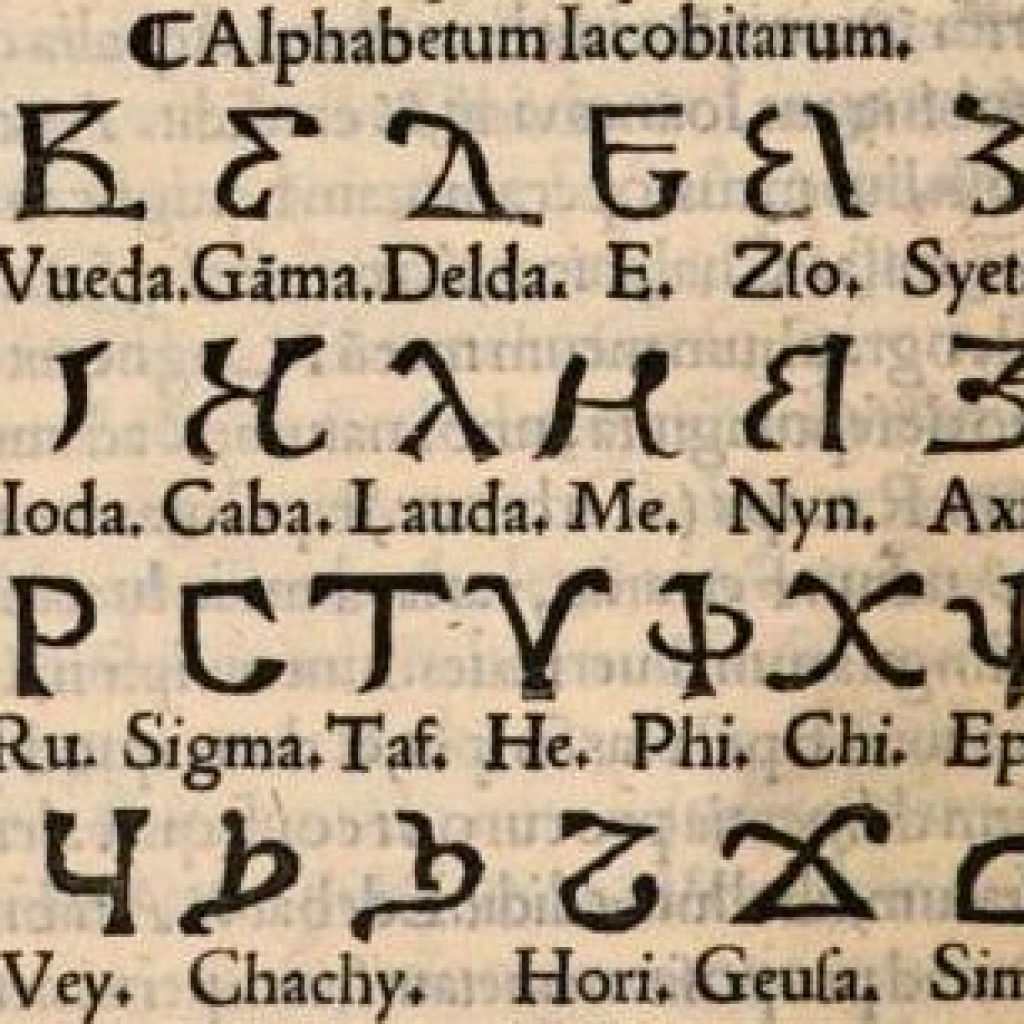 ⸿Alphabetum Iacobitarum.
Ⲃ Ⲅ Ⲇ Ⲉ Ⲋ Ⲍ
Vueda. Gāma. Delda. E. Zſo. Syet
Ⲓ Ⲕ Ⲗ Ⲙ Ⲛ Ⲝ
Ioda. Caba. Lauda. Me. Nyn. Ax
Ⲣ Ⲥ Ⲧ Ⲩ Ⲫ Ⲭ Ⲯ
Ru. Sigma. Taf. He. Phi. Chi. Ep
Ϥ Ϧ Ϧ Ϩ Ϫ Ϭ
Vey. Chachy. Hori. Geuſa. Sim